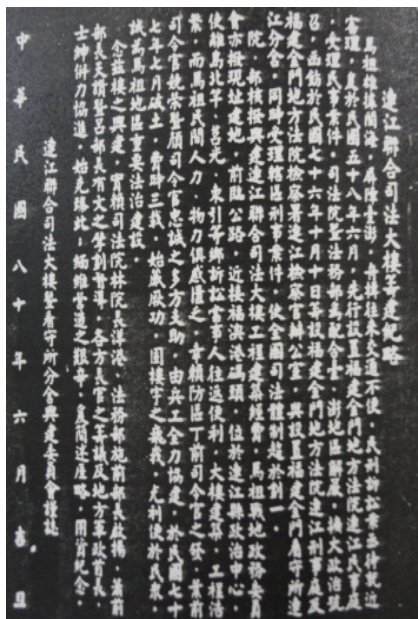 連江聯合司法大樓籌建紀略
馬祖雄據閩海，屏障臺澎，每轉往來交通不便，民刑訴訟案亟待就近
審理，爰於民國五十八年六月，先行設置福建金門地方法院連江民事庭
，受理民事案件，司法院暨法務部為配合臺、澎地區解嚴，擴大政治號
召，函飭於民國七十六年十月十日籌設福建金門地方法院連江刑事庭及
福建金門地方法院檢察署連江檢察官辦公室，與設置福建金門看守所連
江分舍，同時受理轄區刑事案件，使全國司法體制趨於劃一。
院、部核撥興建連江聯合司法大樓工程建築經費，馬祖戰地政務委員
會亦撥現址建地，前臨公路，近接福澳港碼頭，位於連江縣政治中心，
使離馬北竿、莒光、東引等鄉訴訟當事人往返便利，大樓建築，工程浩
繁，而馬祖民間人力、物力俱感匱乏，幸賴防區丁前司令官之發、葉前
司令官競榮暨顏司令官忠誠之多方支助，由兵工全力協建，於民國七十
七年七月破土，費時三載，始蕆厥功，固樓宇之巍峨，尤利便於民眾，
誠為馬祖地區重要法治建設。
念茲樓之興建，實賴司法院林院長洋港、法務部施前部長啟揚、蕭前
部長天讚暨呂部長有文之籌劃督導，各方長官之善議及地方軍政首長、
士紳併力協進，始克臻此，緬維營造之艱辛，爰簡述崖略，用資紀念。
連江聯合司法大樓暨看守所分舍興建委員會謹誌
中華民國八十年六月吉旦